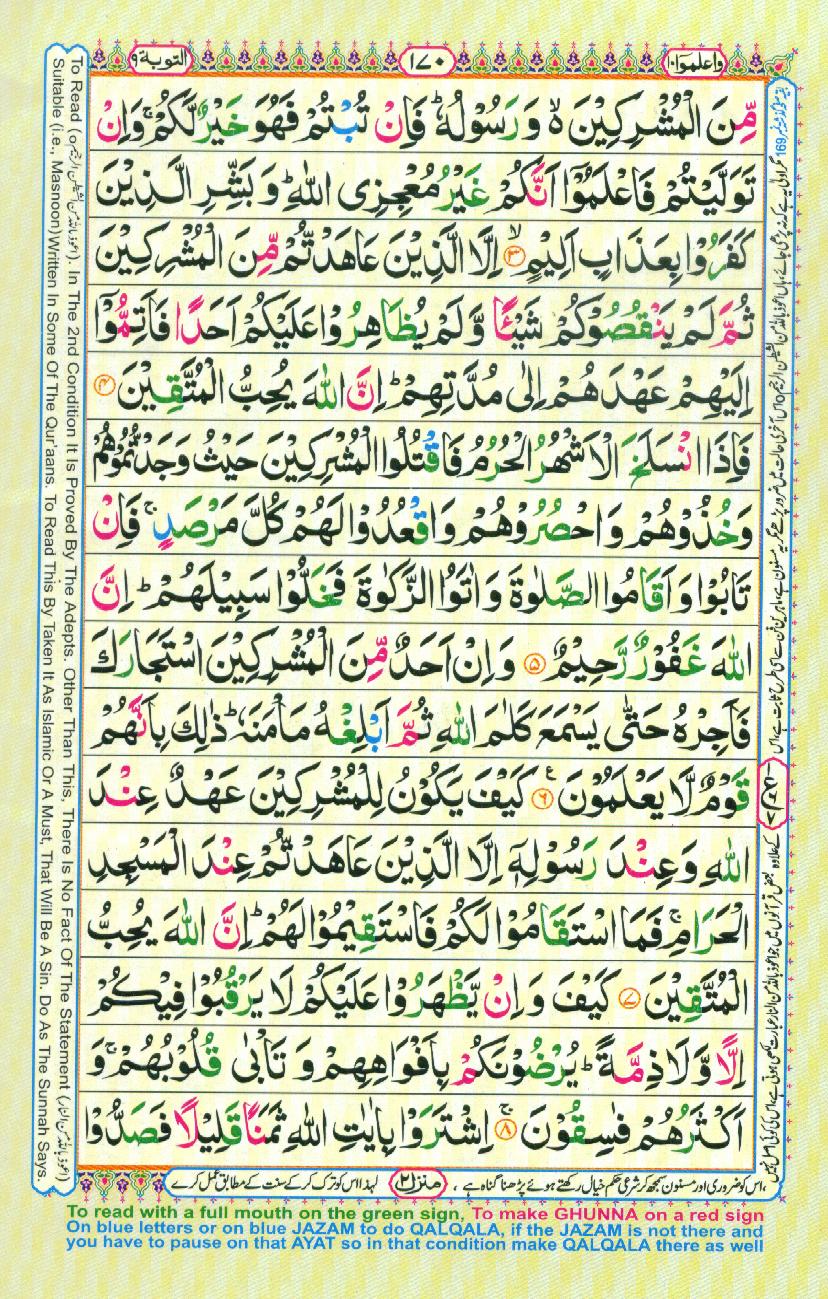 التوبة ٩
١٧٠
واعلموٓا ١٠
مِّنَ الْمُشْرِكِيْنَ ۙ۬ وَ رَسُوْلُهٗ ؕ فَاِنْ تُبْتُمْ فَهُوَ خَيْرٌ لَّكُمْ ۚ وَاِنْ
تَوَلَّيْتُمْ فَاعْلَمُوْۤا اَنَّكُمْ غَيْرُ مُعْجِزِى اللّٰهِ ؕ وَ بَشِّرِ الَّذِيْنَ
كَفَرُوْا بِعَذَابٍ اَلِيْمٍ ۙ‏ ﴿۳﴾ اِلَّا الَّذِيْنَ عَاهَدْتُّمْ مِّنَ الْمُشْرِكِيْنَ
ثُمَّ لَمْ يَنْقُصُوْكُمْ شَيْـًٔا وَّ لَمْ يُظَاهِرُوْا عَلَيْكُمْ اَحَدًا فَاَتِمُّوْۤا
اِلَيْهِمْ عَهْدَهُمْ اِلٰى مُدَّتِهِمْ ؕ اِنَّ اللّٰهَ يُحِبُّ الْمُتَّقِيْنَ ﴿۴﴾
فَاِذَا انْسَلَخَ الْاَشْهُرُ الْحُرُمُ فَاقْتُلُوا الْمُشْرِكِيْنَ حَيْثُ وَجَدْتُّمُوْهُمْ
وَخُذُوْهُمْ وَاحْصُرُوْهُمْ وَاقْعُدُوْا لَهُمْ كُلَّ مَرْصَدٍ ۚ فَاِنْ
تَابُوْا وَاَقَامُوا الصَّلٰوةَ وَاٰتَوُا الزَّكٰوةَ فَخَلُّوْا سَبِيْلَهُمْ ؕ اِنَّ
اللّٰهَ غَفُوْرٌ رَّحِيْمٌ ﴿۵﴾ وَاِنْ اَحَدٌ مِّنَ الْمُشْرِكِيْنَ اسْتَجَارَكَ
فَاَجِرْهُ حَتّٰى يَسْمَعَ كَلٰمَ اللّٰهِ ثُمَّ اَبْلِغْهُ مَاْمَنَهٗ ؕ ذٰلِكَ بِاَنَّهُمْ
قَوْمٌ لَّا يَعْلَمُوْنَ ﴿۶﴾ كَيْفَ يَكُوْنُ لِلْمُشْرِكِيْنَ عَهْدٌ عِنْدَ
اللّٰهِ وَعِنْدَ رَسُوْلِهٖۤ اِلَّا الَّذِيْنَ عَاهَدْتُّمْ عِنْدَ الْمَسْجِدِ
الْحَرَامِ ۚ فَمَا اسْتَقَامُوْا لَكُمْ فَاسْتَقِيْمُوْا لَهُمْ ؕ اِنَّ اللّٰهَ يُحِبُّ
الْمُتَّقِيْنَ ﴿۷﴾ كَيْفَ وَاِنْ يَّظْهَرُوْا عَلَيْكُمْ لَا يَرْقُبُوْا فِيْكُمْ
اِلًّا وَّلَا ذِمَّةً ؕ يُرْضُوْنَكُمْ بِاَفْوَاهِهِمْ وَ تَاْبٰى قُلُوْبُهُمْ ۚ وَ
اَكْثَرُهُمْ فٰسِقُوْنَ ۚ ﴿۸﴾ اِشْتَرَوْا بِاٰيٰتِ اللّٰهِ ثَمَنًا قَلِيْلًا فَصَدُّوْا
،اس کو ضروری اور مسنون سمجھ کر شرعی حکم خیال رکھتے ہوئے پڑھنا گناہ ہے ، منزل ٢ لہٰذا اس کو ترک کر کے سنت کے مطابق عمل کرے
To Read (اعوذ باللہ من الشیطٰن الرجیم). In The 2nd Condition It Is Proved By The Adepts. Other Than This, There Is No Fact Of The Statement (اعوذ باللہ من النار)
Suitable (i.e., Masnoon)Written In Some Of The Qur'aans. To Read This By Taken It As Islamic Or A Must, That Will Be A Sin. Do As The Sunnah Says.
To read with a full mouth on the green sign, To make GHUNNA on a red sign
On blue letters or on blue JAZAM to do QALQALA, if the JAZAM is not there and
you have to pause on that AYAT so in that condition make QALQALA there as well